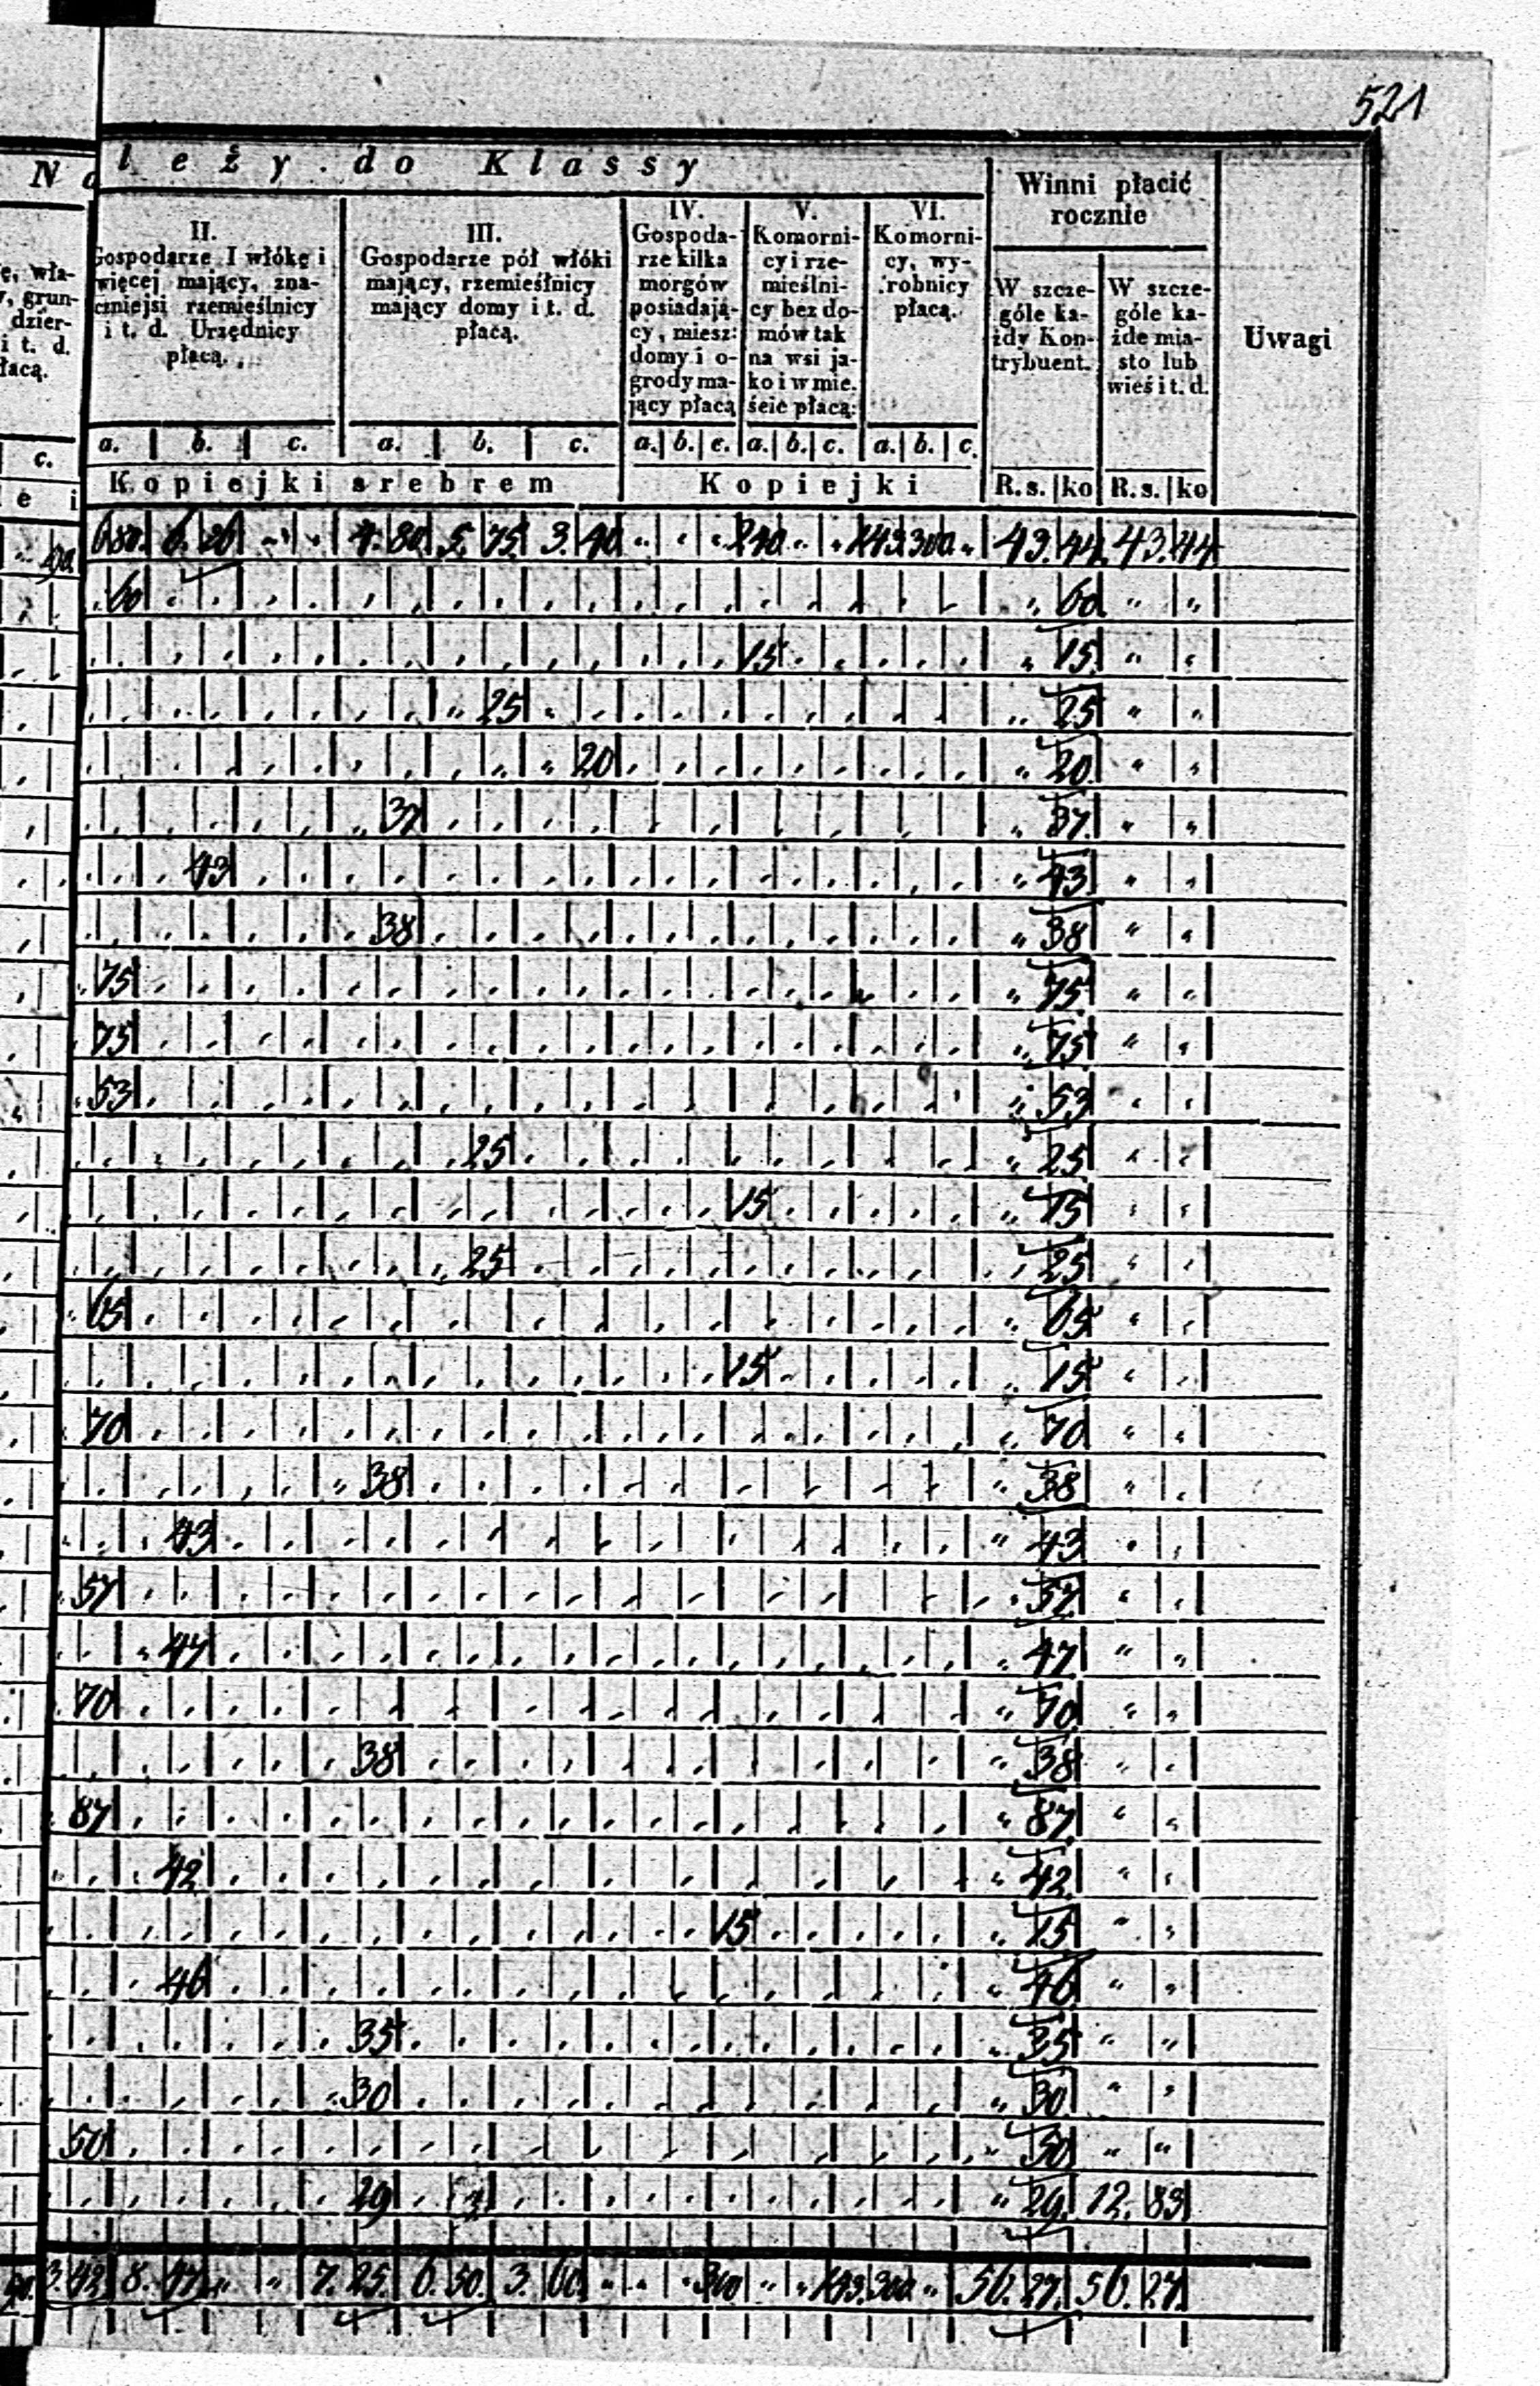 521
N a l e ż y . d o K l a s s y
Winni płacić
rocznie
Uwagi
ę, wła-
grun-
dzier-
i t. d.
łacą.
II.
Gospodarze I włókę i
więcej mający, zna-
czniejsi rzemieślnicy
i t. d. Urzędnicy
płacą.
III.
Gospodarze pół włóki
mający, rzemieślnicy
mający domy i t. d.
płacą.
IV.
Gospoda-
rze kilka
morgów
posiadają-
cy, miesz:
domy i o-
grody ma-
jący płacą
V.
Komorni-
cy i rze-
mieślni-
cy bez do-
mów tak
na wsi ja-
ko i w mie.
ście płacą:
VI.
Komorni-
cy, wy-
robnicy
płacą.
W szcze-
góle ka-
żdy Kon-
trybuent.
W szcze-
góle ka-
żde mia-
sto lub
wieś i t. d.
c. a. b. c. a. b. c. a. b. c. a. b. c. a. b. c.
e i Kopiejki srebrem Kopiejki R. s. ko R. s. ko
6 80. 6. 26 " " 4. 80 5. 75. 3. 40 " " " 240 " " 143 300 " 43. 44. 43. 44
60 " 60 " "
15 " 15 " "
25 " 25 " "
20 " 20 " "
37 " 37 " "
43 " 43 " "
38 " 38 " "
75 " 75 " "
75 " 75 " "
53 " 53 " "
25 " 25 " "
15 " 15 " "
25 " 25 " "
65 " 65 " "
15 " 15 " "
70 " 70 " "
38 " 38 " "
43 " 43 " "
57 " 57 " "
47 " 47 " "
70 " 70 " "
38 " 38 " "
87 " 87 " "
42 " 42 " "
15 " 15 " "
46 " 46 " "
35 " 35 " "
30 " 30 " "
50 " 50 " "
29 " 29. 12. 83
3. 42 8. 47 " " 7. 25. 6. 50. 3. 60. " " " 300 " " 143. 300 " 56. 27. 56. 27.